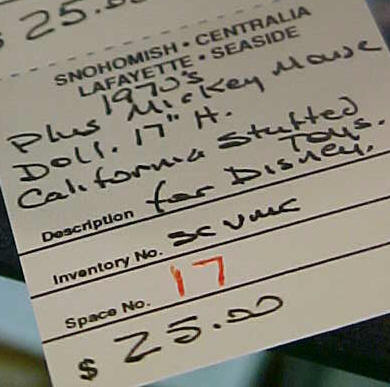 $ 25.
SNOHOMISH • CENTRALIA
LAFAYETTE • SEASIDE
1970's
Plus Mickey Mouse
Doll. 17" H.
California Stuffed
Toys.
Description for Disney.
Inventory No. SCVMC
Space No. 17
$ 25.00